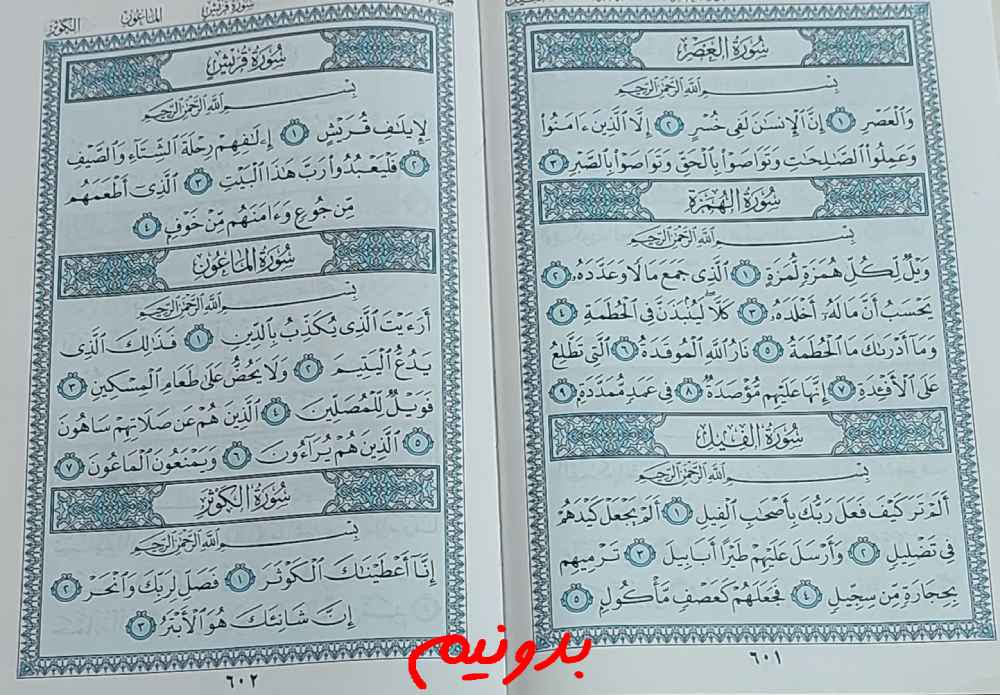 سُورَةُ العَصْرِ
بِسْمِ اللَّهِ الرَّحْمَٰنِ الرَّحِيمِ
وَالْعَصْرِ ١ إِنَّ الْإِنسَانَ لَفِي خُسْرٍ ٢ إِلَّا الَّذِينَ ءَامَنُوا
وَعَمِلُوا الصَّالِحَاتِ وَتَوَاصَوْا بِالْحَقِّ وَتَوَاصَوْا بِالصَّبْرِ ٣
سُورَةُ الهُمَزَةِ
بِسْمِ اللَّهِ الرَّحْمَٰنِ الرَّحِيمِ
وَيْلٌ لِّكُلِّ هُمَزَةٍ لُّمَزَةٍ ١ الَّذِي جَمَعَ مَالًا وَعَدَّدَهُ ٢
يَحْسَبُ أَنَّ مَالَهُ أَخْلَدَهُ ٣ كَلَّا ۖ لَيُنبَذَنَّ فِي الْحُطَمَةِ ٤
وَمَا أَدْرَاكَ مَا الْحُطَمَةُ ٥ نَارُ اللَّهِ الْمُوقَدَةُ ٦ الَّتِي تَطَّلِعُ
عَلَى الْأَفْئِدَةِ ٧ إِنَّهَا عَلَيْهِم مُّؤْصَدَةٌ ٨ فِي عَمَدٍ مُّمَدَّدَةٍ ٩
سُورَةُ الفِيلِ
بِسْمِ اللَّهِ الرَّحْمَٰنِ الرَّحِيمِ
أَلَمْ تَرَ كَيْفَ فَعَلَ رَبُّكَ بِأَصْحَابِ الْفِيلِ ١ أَلَمْ يَجْعَلْ كَيْدَهُمْ
فِي تَضْلِيلٍ ٢ وَأَرْسَلَ عَلَيْهِمْ طَيْرًا أَبَابِيلَ ٣ تَرْمِيهِم
بِحِجَارَةٍ مِّن سِجِّيلٍ ٤ فَجَعَلَهُمْ كَعَصْفٍ مَّأْكُولٍ ٥
٦٠١
سُورَةُ قُرَيْشٍ
المَاعُون
الكَوْثَر
سُورَةُ قُرَيْشٍ
بِسْمِ اللَّهِ الرَّحْمَٰنِ الرَّحِيمِ
لِإِيلَافِ قُرَيْشٍ ١ إِۦلَافِهِمْ رِحْلَةَ الشِّتَاءِ وَالصَّيْفِ
٢ فَلْيَعْبُدُوا رَبَّ هَٰذَا الْبَيْتِ ٣ الَّذِي أَطْعَمَهُم
مِّن جُوعٍ وَءَامَنَهُم مِّنْ خَوْفٍ ٤
سُورَةُ المَاعُونِ
بِسْمِ اللَّهِ الرَّحْمَٰنِ الرَّحِيمِ
أَرَءَيْتَ الَّذِي يُكَذِّبُ بِالدِّينِ ١ فَذَٰلِكَ الَّذِي
يَدُعُّ الْيَتِيمَ ٢ وَلَا يَحُضُّ عَلَىٰ طَعَامِ الْمِسْكِينِ ٣
فَوَيْلٌ لِّلْمُصَلِّينَ ٤ الَّذِينَ هُمْ عَن صَلَاتِهِمْ سَاهُونَ
٥ الَّذِينَ هُمْ يُرَاءُونَ ٦ وَيَمْنَعُونَ الْمَاعُونَ ٧
سُورَةُ الكَوْثَرِ
بِسْمِ اللَّهِ الرَّحْمَٰنِ الرَّحِيمِ
إِنَّا أَعْطَيْنَاكَ الْكَوْثَرَ ١ فَصَلِّ لِرَبِّكَ وَانْحَرْ ٢
إِنَّ شَانِئَكَ هُوَ الْأَبْتَرُ ٣
٦٠٢
بدونیم